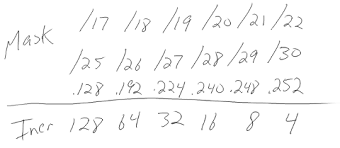 Mask /17 /18 /19 /20 /21 /22
/25 /26 /27 /28 /29 /30
.128 .192 .224 .240 .248 .252
Incr 128 64 32 16 8 4